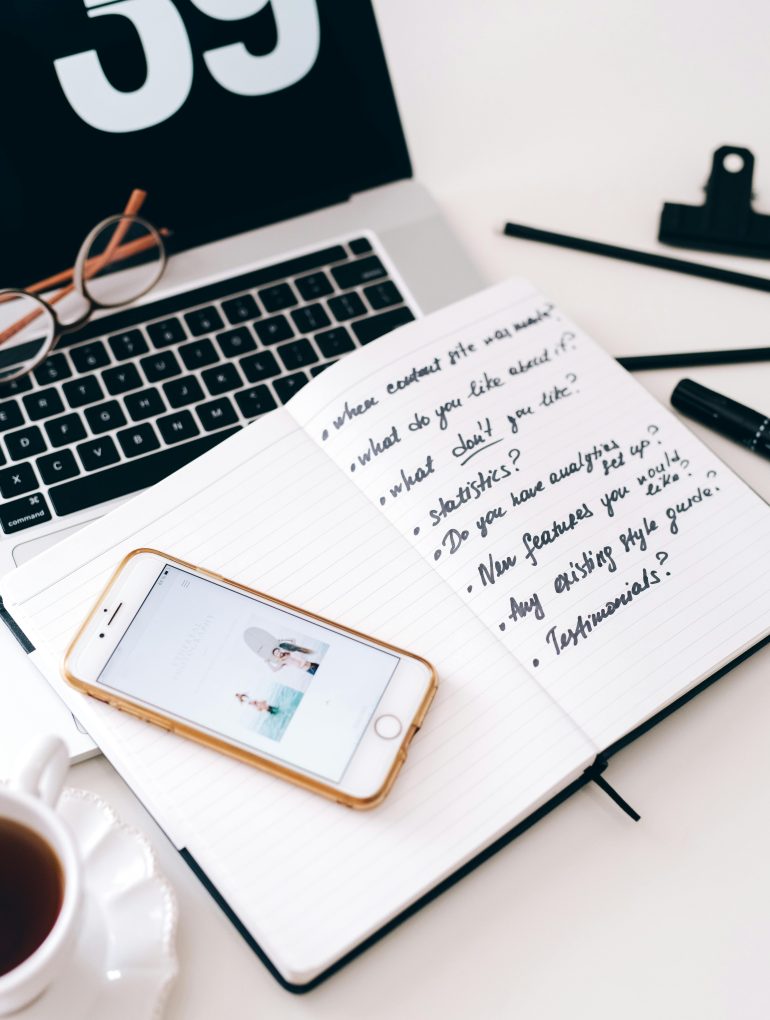 39
• when content site was made?
• what do you like about it?
• what don't you like?
• statistics?
• Do you have analytics
set up?
• New features you would
like?
• Any existing style guide?
• Testimonials?
E
D
F
G
H
J
K
L
X
C
V
B
N
M
⌘
command